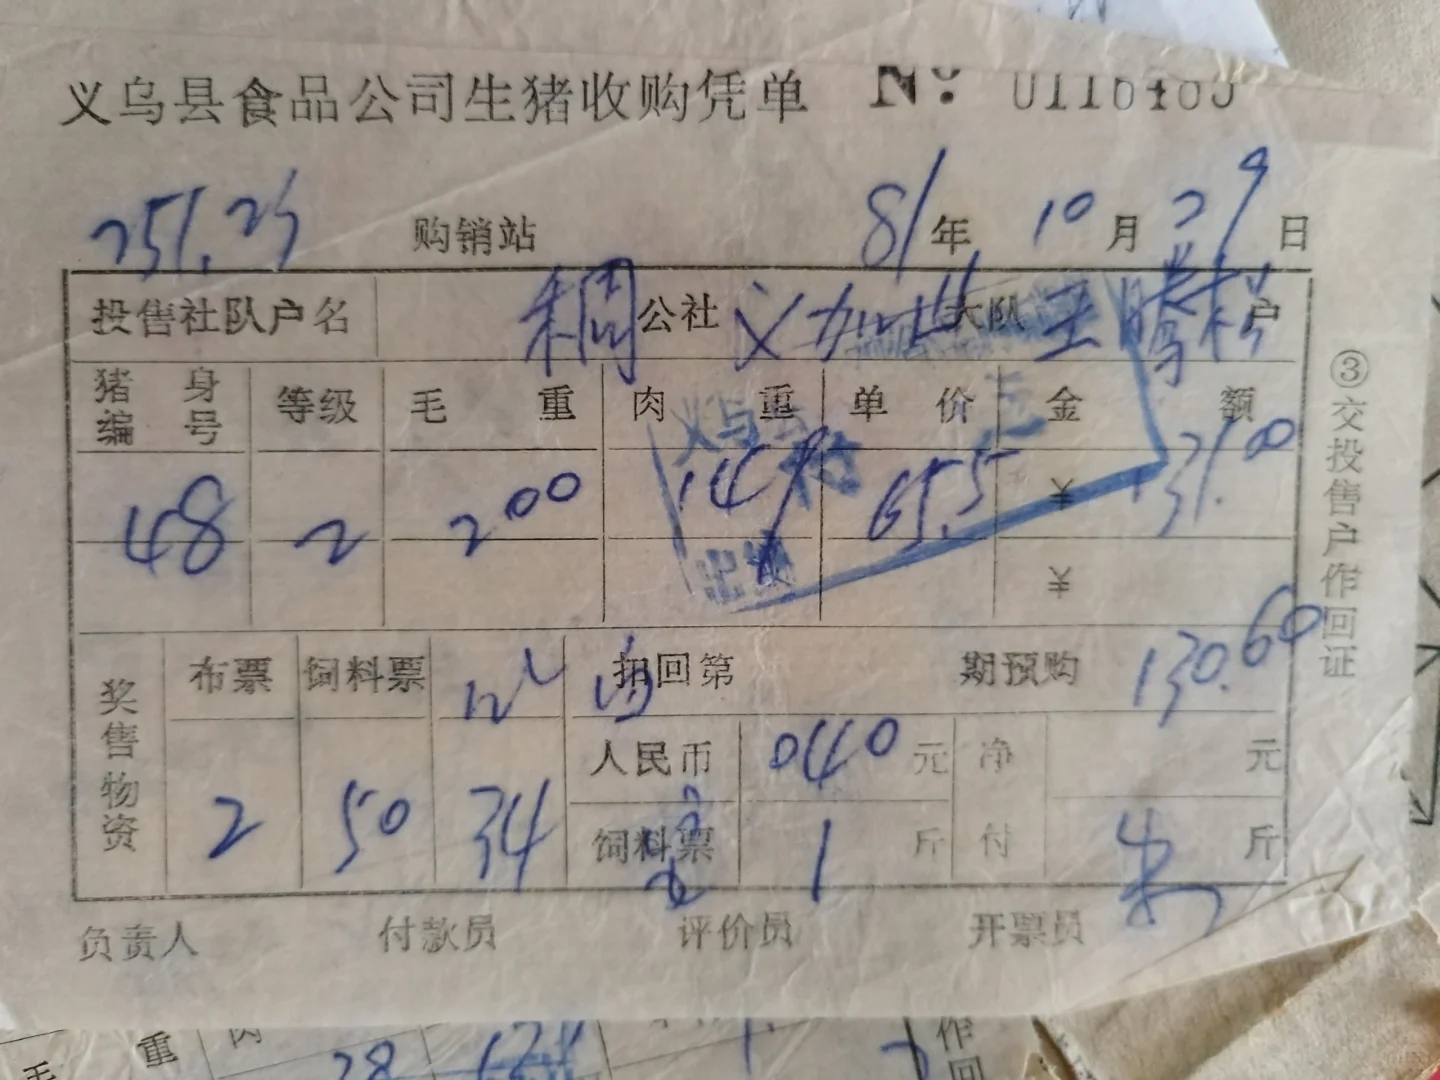 义乌县食品公司生猪收购凭单 №: 0116485
购销站 81年 10月 29日
投售社队户名 公社 义加山 大队 王腾松 户
猪身编号 等级 毛重 肉重 单价 金额
48 2 200 65.5 ¥ 131.00
¥
奖售物资 布票 饲料票 扣回第 期预购 130.60
人民币 040 元 净付 元
2 50 34 饲料票 1 斤 斤
负责人 付款员 评价员 开票员
③交投售户作回证
毛 重 肉
28
作回